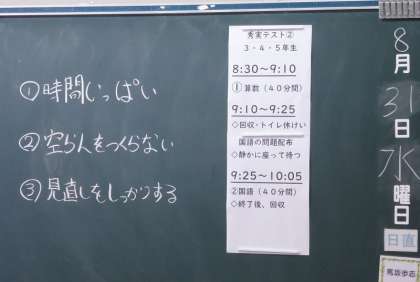 ①時間いっぱい
②空らんをつくらない
③見直しをしっかりする
秀実テスト②
3・4・5年生
8:30～9:10
①算数(40分間)
9:10～9:25
◇回収・トイレ休けい
国語の問題配布
◇静かに座って待つ
9:25～10:05
②国語(40分間)
◇終了後、回収
8
月
31
日
水
曜
日
日直